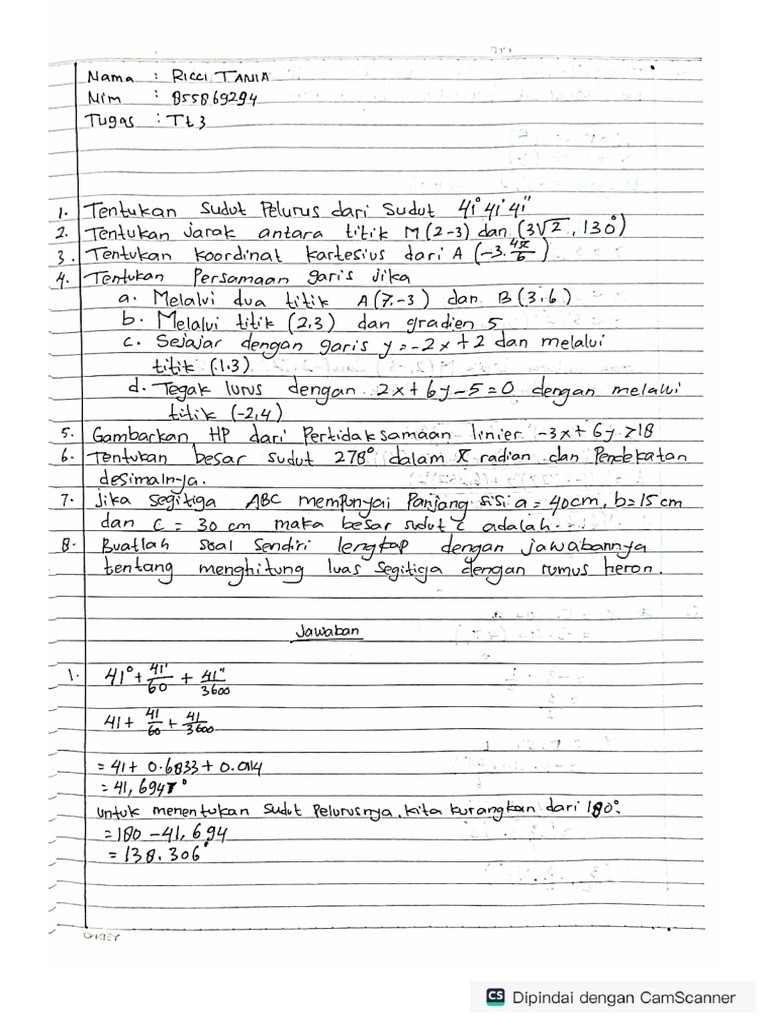 Nama : RICCI TANIA
Nim : 855869294
Tugas : Tt 3
1. Tentukan Sudut Pelurus dari Sudut 41° 41' 41"
2. Tentukan jarak antara titik M (2-3) dan (3√2, 130°)
3. Tentukan koordinat kartesius dari A (-3. 4π/6)
4. Tentukan Persamaan garis jika
a. Melalui dua titik A (7,-3) dan B (3,6)
b. Melalui titik (2,3) dan gradien 5
c. Sejajar dengan garis y = -2x + 2 dan melalui
titik (1.3)
d. Tegak lurus dengan 2x + 6y - 5 = 0 dengan melalui
titik (-2,4)
5. Gambarkan HP dari Pertidaksamaan linier -3x + 6y >18
6. Tentukan besar sudut 278° dalam π radian dan Pendekatan
desimalnya.
7. Jika segitiga ABC mempunyai Panjang sisi a = 40cm, b = 15 cm
dan C = 30 cm maka besar sudut C adalah...
8. Buatlah soal Sendiri lengkap dengan jawabannya
tentang menghitung luas segitiga dengan rumus heron.
Jawaban
1. 41° + 41'/60 + 41"/3600
41 + 41/60 + 41/3600
= 41 + 0.6833 + 0.0114
= 41,6947°
untuk menentukan sudut Pelurusnya, kita kurangkan dari 180°.
= 180 - 41,694
= 138.306°
CS Dipindai dengan CamScanner